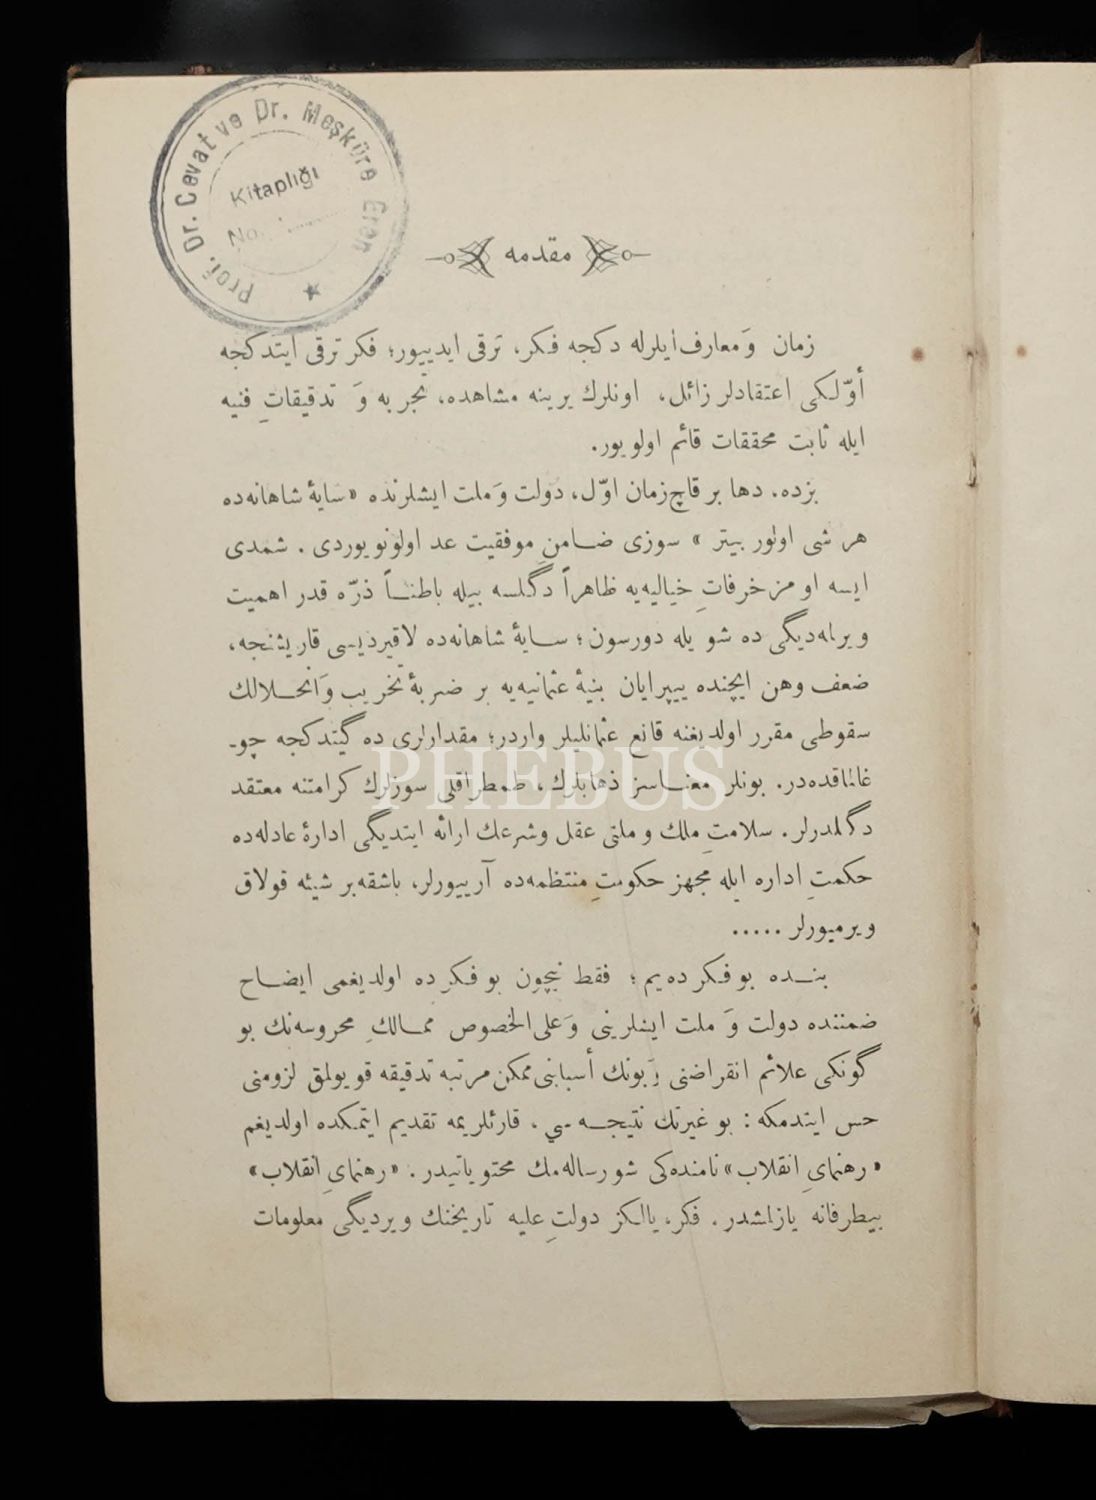 Prof. Dr. Cevat ve Dr. Meşküre Eren
Kitaplığı
No.
مقدمه
زمان وَ معارف ایلرله دكجه فكر، ترقی ایدییور؛ فكر ترقی ایتدكجه
أوّلكی اعتقادلر زائل، اونلرك یرینه مشاهده، تجربه وَ تدقیقاتِ فنیه
ایله ثابت محققات قائم اولویور.
بزده، دها بر قاچ زمان اوّل، دولت وَ ملت ایشلرنده «سایهٔ شاهانه‌ده
هر شی اولور بیتر» سوزی ضامن موفقیت عد اولونویوردی. شمدی
ایسه او مزخرفاتِ خیالیه‌یه ظاهراً دگلسه بیله باطناً ذرّه قدر اهمیت
ویرلمه‌دیگی ده شویله دورسون؛ سایهٔ شاهانه‌ده لاقیردیسی قاریشنجه،
ضعف وهن ایچنده ییپرایان بنیهٔ عثمانیه‌یه بر ضربهٔ تخریب وَ انحلالك
سقوطی مقرر اولدیغنه قانع عثمانلیلر واردر؛ مقدارلری ده گیتدكجه چو-
غالماقده‌در. بونلر معناسز ذهابلرك، طمطراقلی سوزلرك كرامتنه معتقد
دگلدرلر. سلامتِ ملك و ملتی عقل وشرعك ارائه ایتدیگی ادارهٔ عادله‌ده
حكمتِ اداره ایله مجهز حكومتِ منتظمه‌ده آرییورلر، باشقه بر شیئه قولاق
ویرمیورلر .....
بنده بو فكرده‌یم؛ فقط نیچون بو فكرده اولدیغمی ایضاح
ضمننده دولت وَ ملت ایشلرینی وَ علی الخصوص ممالكِ محروسه‌نك بو
گونكی علائم انقراضنی وَ بونك أسبابنی ممكن مرتبه تدقیقه قویولمق لزومنی
حس ایتدمكه: بو غیرتك نتیجه‌سی، قارئلریمه تقدیم ایتمكده اولدیغم
«رهنمایِ انقلاب» نامنده‌كی شو رساله‌مك محتویاتیدر. «رهنمایِ انقلاب»
بیطرفانه یازلمشدر. فكر، یالكز دولتِ علیه تاریخنك ویردیگی معلومات
PHEBUS